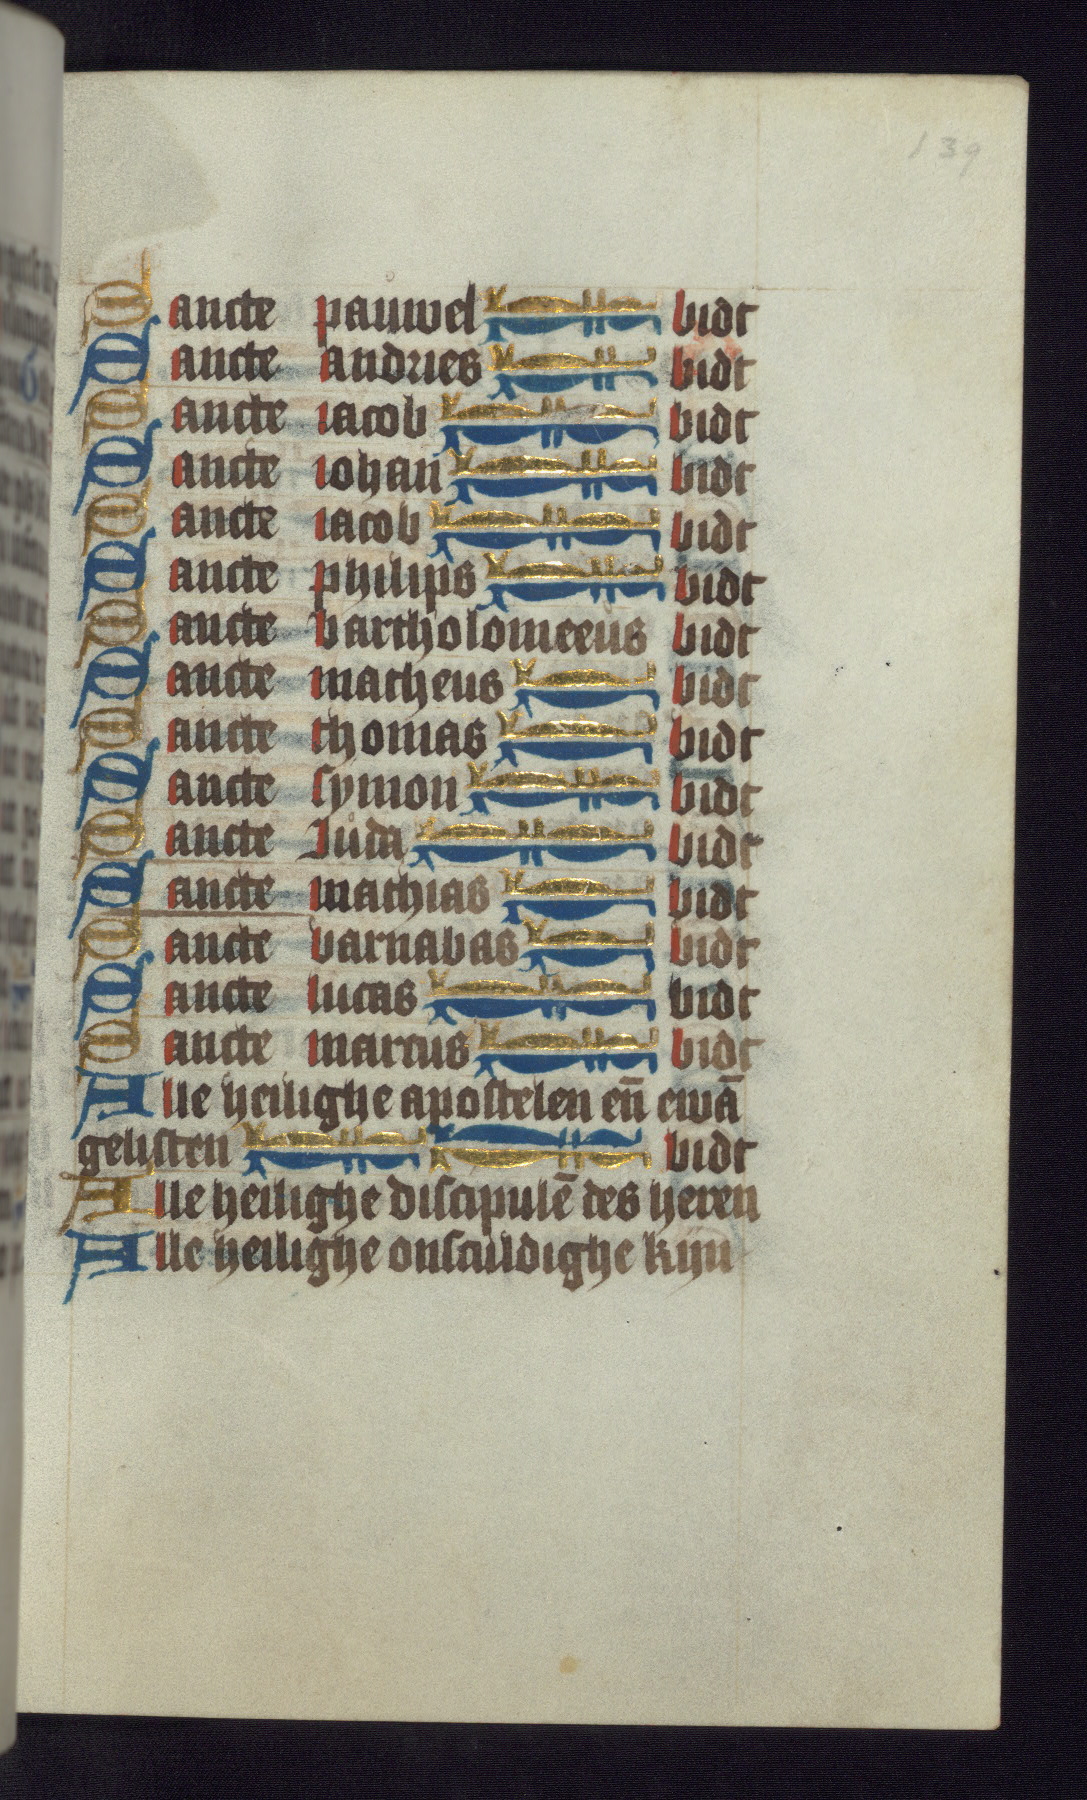 139
Sancte pauwel bidt
Sancte andries bidt
Sancte iacob bidt
Sancte iohan bidt
Sancte iacob bidt
Sancte philips bidt
Sancte bartholomeeus bidt
Sancte matheus bidt
Sancte thomas bidt
Sancte symon bidt
Sancte Juda bidt
Sancte mathias bidt
Sancte barnabas bidt
Sancte lucas bidt
Sancte marcus bidt
Alle heilighe apostelen en̄ ewā
gelisten bidt
Alle heilighe discipulē des heren
Alle heilighe onsculdighe kijn